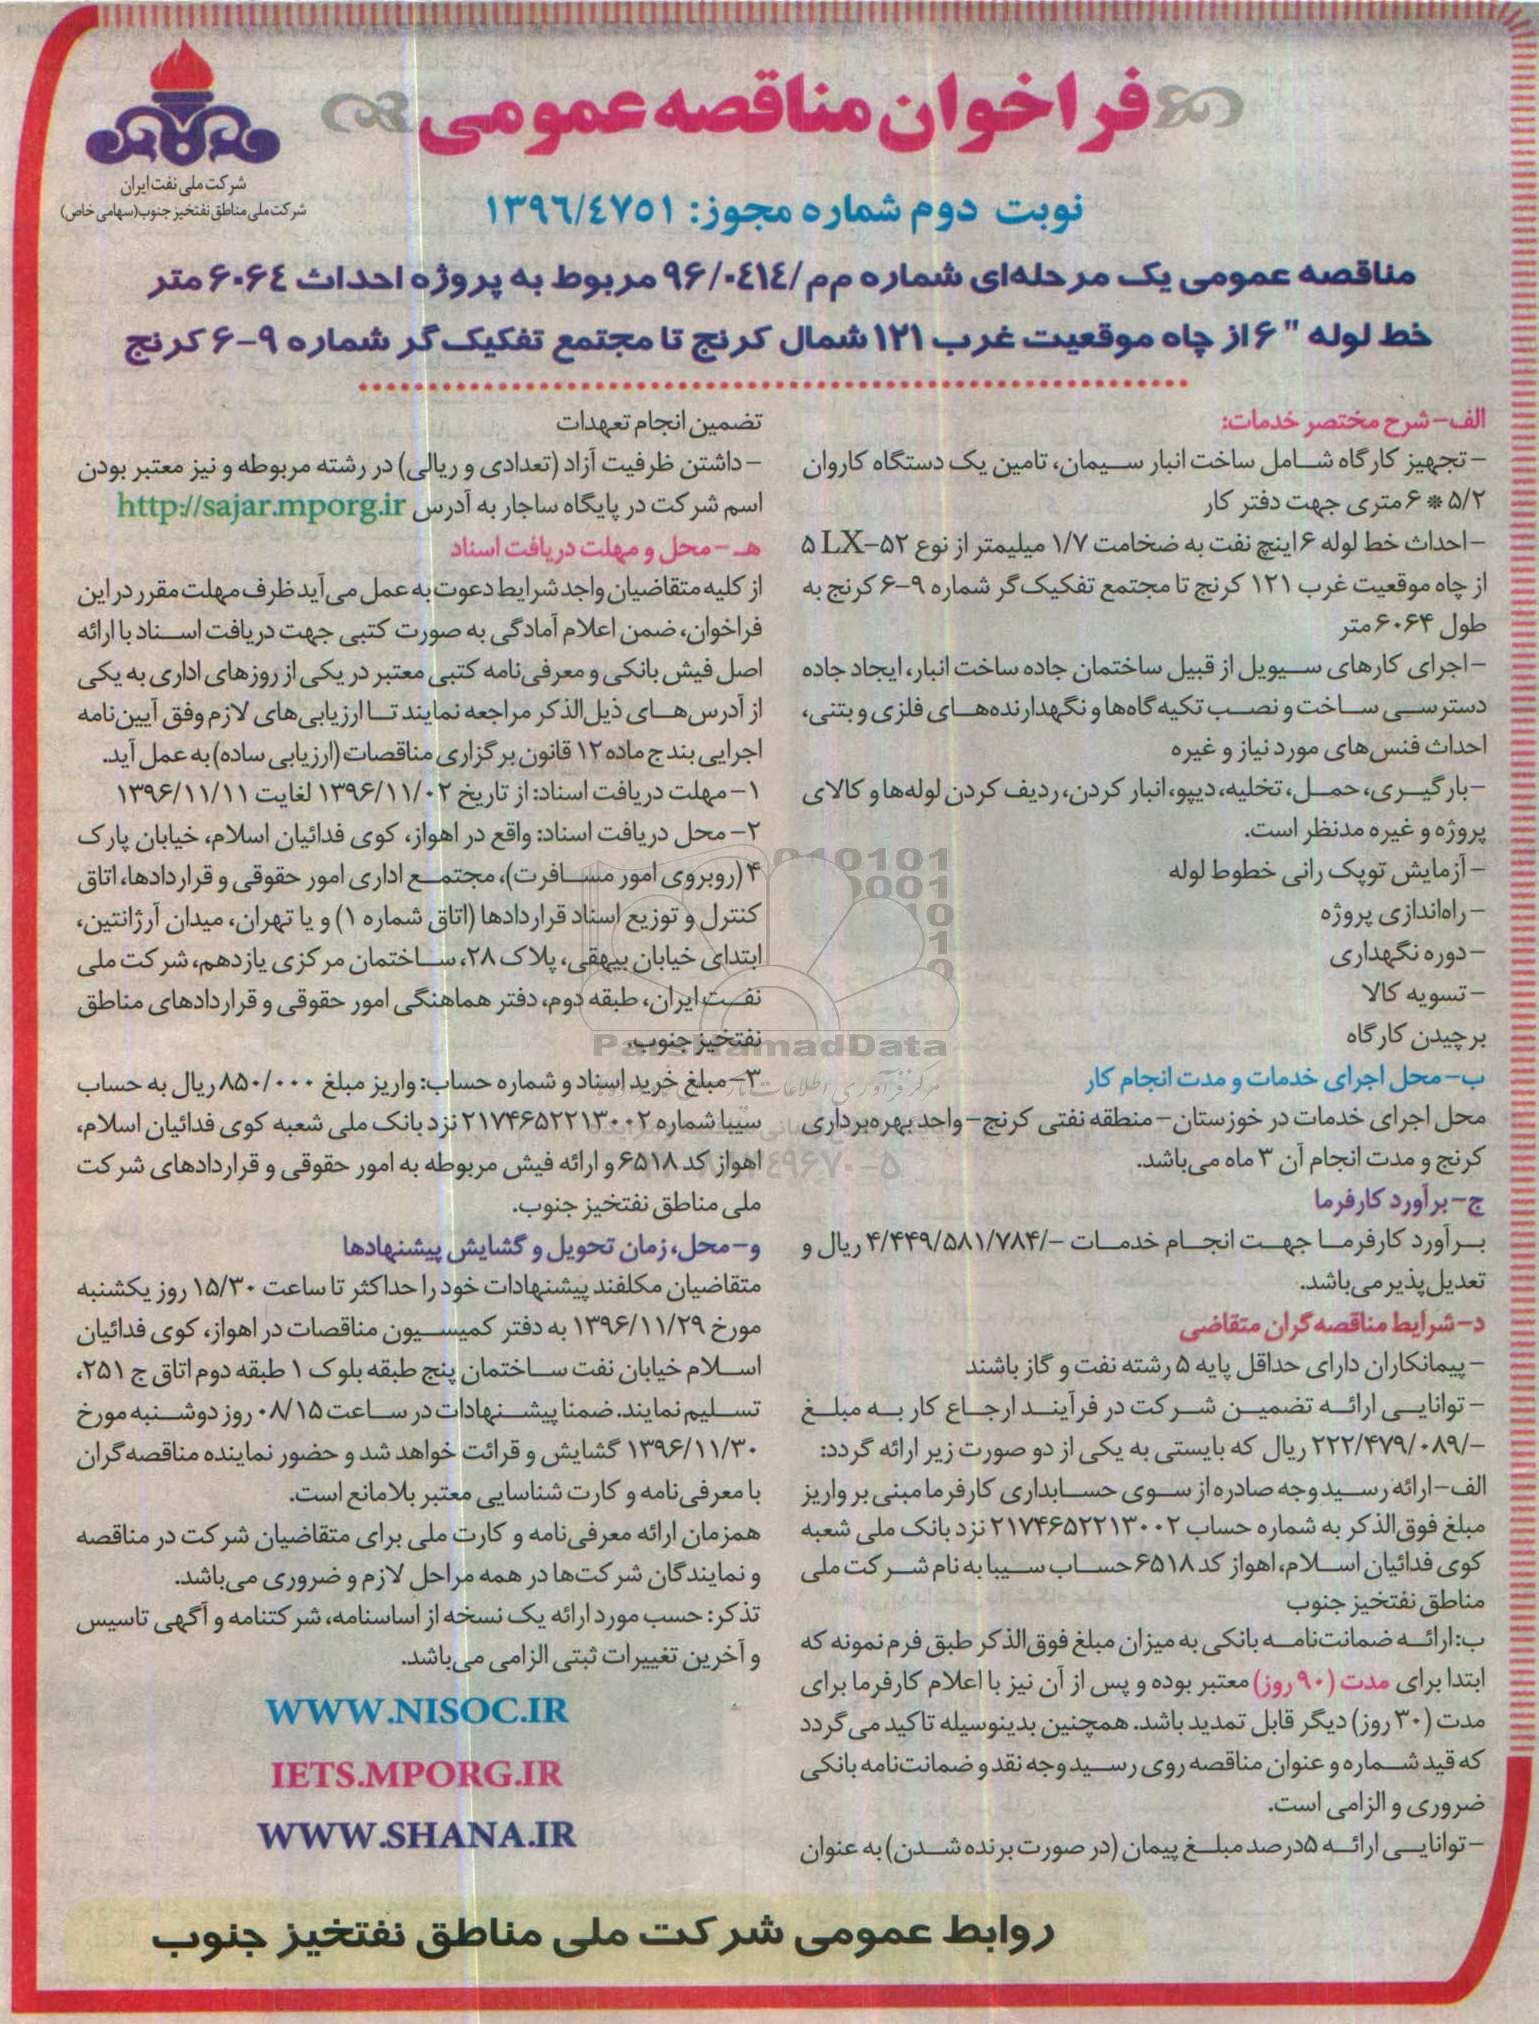 فراخوان مناقصه عمومی
شرکت ملی نفت ایران
شرکت ملی مناطق نفتخیز جنوب(سهامی خاص)
نوبت دوم شماره مجوز: ۱۳۹۶/۴۷۵۱
مناقصه عمومی یک مرحله‌ای شماره م‌م/۹۶/۰۴۱۴ مربوط به پروژه احداث ۶۰۶۴ متر
خط لوله "۶ از چاه موقعیت غرب ۱۲۱ شمال کرنج تا مجتمع تفکیک‌گر شماره ۹-۶ کرنج
الف- شرح مختصر خدمات:
- تجهیز کارگاه شامل ساخت انبار سیمان، تامین یک دستگاه کاروان
۵/۲ * ۶ متری جهت دفتر کار
- احداث خط لوله ۶ اینچ نفت به ضخامت ۱/۷ میلیمتر از نوع ۵ LX-۵۲
از چاه موقعیت غرب ۱۲۱ کرنج تا مجتمع تفکیک‌گر شماره ۹-۶ کرنج به
طول ۶۰۶۴ متر
- اجرای کارهای سیویل از قبیل ساختمان جاده ساخت انبار، ایجاد جاده
دسترسی ساخت و نصب تکیه گاه‌ها و نگهدارنده‌های فلزی و بتنی،
احداث فنس‌های مورد نیاز و غیره
- بارگیری، حمل، تخلیه، دیپو، انبار کردن، ردیف کردن لوله‌ها و کالای
پروژه و غیره مدنظر است.
- آزمایش توپک رانی خطوط لوله
- راه‌اندازی پروژه
- دوره نگهداری
- تسویه کالا
برچیدن کارگاه
ب- محل اجرای خدمات و مدت انجام کار
محل اجرای خدمات در خوزستان- منطقه نفتی کرنج- واحد بهره‌برداری
کرنج و مدت انجام آن ۳ ماه می‌باشد.
ج- برآورد کارفرما
برآورد کارفرما جهت انجام خدمات -/۴/۴۴۹/۵۸۱/۷۸۴ ریال و
تعدیل‌پذیر می‌باشد.
د- شرایط مناقصه گران متقاضی
- پیمانکاران دارای حداقل پایه ۵ رشته نفت و گاز باشند
- توانایی ارائه تضمین شرکت در فرآیند ارجاع کار به مبلغ
-/۲۲۲/۴۷۹/۰۸۹ ریال که بایستی به یکی از دو صورت زیر ارائه گردد:
الف- ارائه رسید وجه صادره از سوی حسابداری کارفرما مبنی بر واریز
مبلغ فوق‌الذکر به شماره حساب ۲۱۷۴۶۵۲۲۱۳۰۰۲ نزد بانک ملی شعبه
کوی فدائیان اسلام، اهواز کد ۶۵۱۸ حساب سیبا به نام شرکت ملی
مناطق نفتخیز جنوب
ب: ارائه ضمانت‌نامه بانکی به میزان مبلغ فوق‌الذکر طبق فرم نمونه که
ابتدا برای مدت (۹۰ روز) معتبر بوده و پس از آن نیز با اعلام کارفرما برای
مدت (۳۰ روز) دیگر قابل تمدید باشد. همچنین بدینوسیله تاکید می گردد
که قید شماره و عنوان مناقصه روی رسید وجه نقد و ضمانت‌نامه بانکی
ضروری و الزامی است.
- توانایی ارائه ۵درصد مبلغ پیمان (در صورت برنده شدن) به عنوان
تضمین انجام تعهدات
- داشتن ظرفیت آزاد (تعدادی و ریالی) در رشته مربوطه و نیز معتبر بودن
اسم شرکت در پایگاه ساجار به آدرس http://sajar.mporg.ir
هـ - محل و مهلت دریافت اسناد
از کلیه متقاضیان واجد شرایط دعوت به عمل می‌آید ظرف مهلت مقرر در این
فراخوان، ضمن اعلام آمادگی به صورت کتبی جهت دریافت اسناد با ارائه
اصل فیش بانکی و معرفی‌نامه کتبی معتبر در یکی از روزهای اداری به یکی
از آدرس‌های ذیل‌الذکر مراجعه نمایند تا ارزیابی‌های لازم وفق آیین‌نامه
اجرایی بند ج ماده ۱۲ قانون برگزاری مناقصات (ارزیابی ساده) به عمل آید.
۱- مهلت دریافت اسناد: از تاریخ ۱۳۹۶/۱۱/۰۲ لغایت ۱۳۹۶/۱۱/۱۱
۲- محل دریافت اسناد: واقع در اهواز، کوی فدائیان اسلام، خیابان پارک
۴ (روبروی امور مسافرت)، مجتمع اداری امور حقوقی و قراردادها، اتاق
کنترل و توزیع اسناد قراردادها (اتاق شماره ۱) و یا تهران، میدان آرژانتین،
ابتدای خیابان بیهقی، پلاک ۲۸، ساختمان مرکزی یازدهم، شرکت ملی
نفت ایران، طبقه دوم، دفتر هماهنگی امور حقوقی و قراردادهای مناطق
نفتخیز جنوب.
۳- مبلغ خرید اسناد و شماره حساب: واریز مبلغ ۸۵۰/۰۰۰ ریال به حساب
سیبا شماره ۲۱۷۴۶۵۲۲۱۳۰۰۲ نزد بانک ملی شعبه کوی فدائیان اسلام،
اهواز کد ۶۵۱۸ و ارائه فیش مربوطه به امور حقوقی و قراردادهای شرکت
ملی مناطق نفتخیز جنوب.
و- محل، زمان تحویل و گشایش پیشنهادها
متقاضیان مکلفند پیشنهادات خود را حداکثر تا ساعت ۱۵/۳۰ روز یکشنبه
مورخ ۱۳۹۶/۱۱/۲۹ به دفتر کمیسیون مناقصات در اهواز، کوی فدائیان
اسلام خیابان نفت ساختمان پنج طبقه بلوک ۱ طبقه دوم اتاق ج ۲۵۱،
تسلیم نمایند. ضمنا پیشنهادات در ساعت ۰۸/۱۵ روز دوشنبه مورخ
۱۳۹۶/۱۱/۳۰ گشایش و قرائت خواهد شد و حضور نماینده مناقصه گران
با معرفی‌نامه و کارت شناسایی معتبر بلامانع است.
همزمان ارائه معرفی‌نامه و کارت ملی برای متقاضیان شرکت در مناقصه
و نمایندگان شرکت‌ها در همه مراحل لازم و ضروری می‌باشد.
تذکر: حسب مورد ارائه یک نسخه از اساسنامه، شرکتنامه و آگهی تاسیس
و آخرین تغییرات ثبتی الزامی می‌باشد.
WWW.NISOC.IR
IETS.MPORG.IR
WWW.SHANA.IR
روابط عمومی شرکت ملی مناطق نفتخیز جنوب